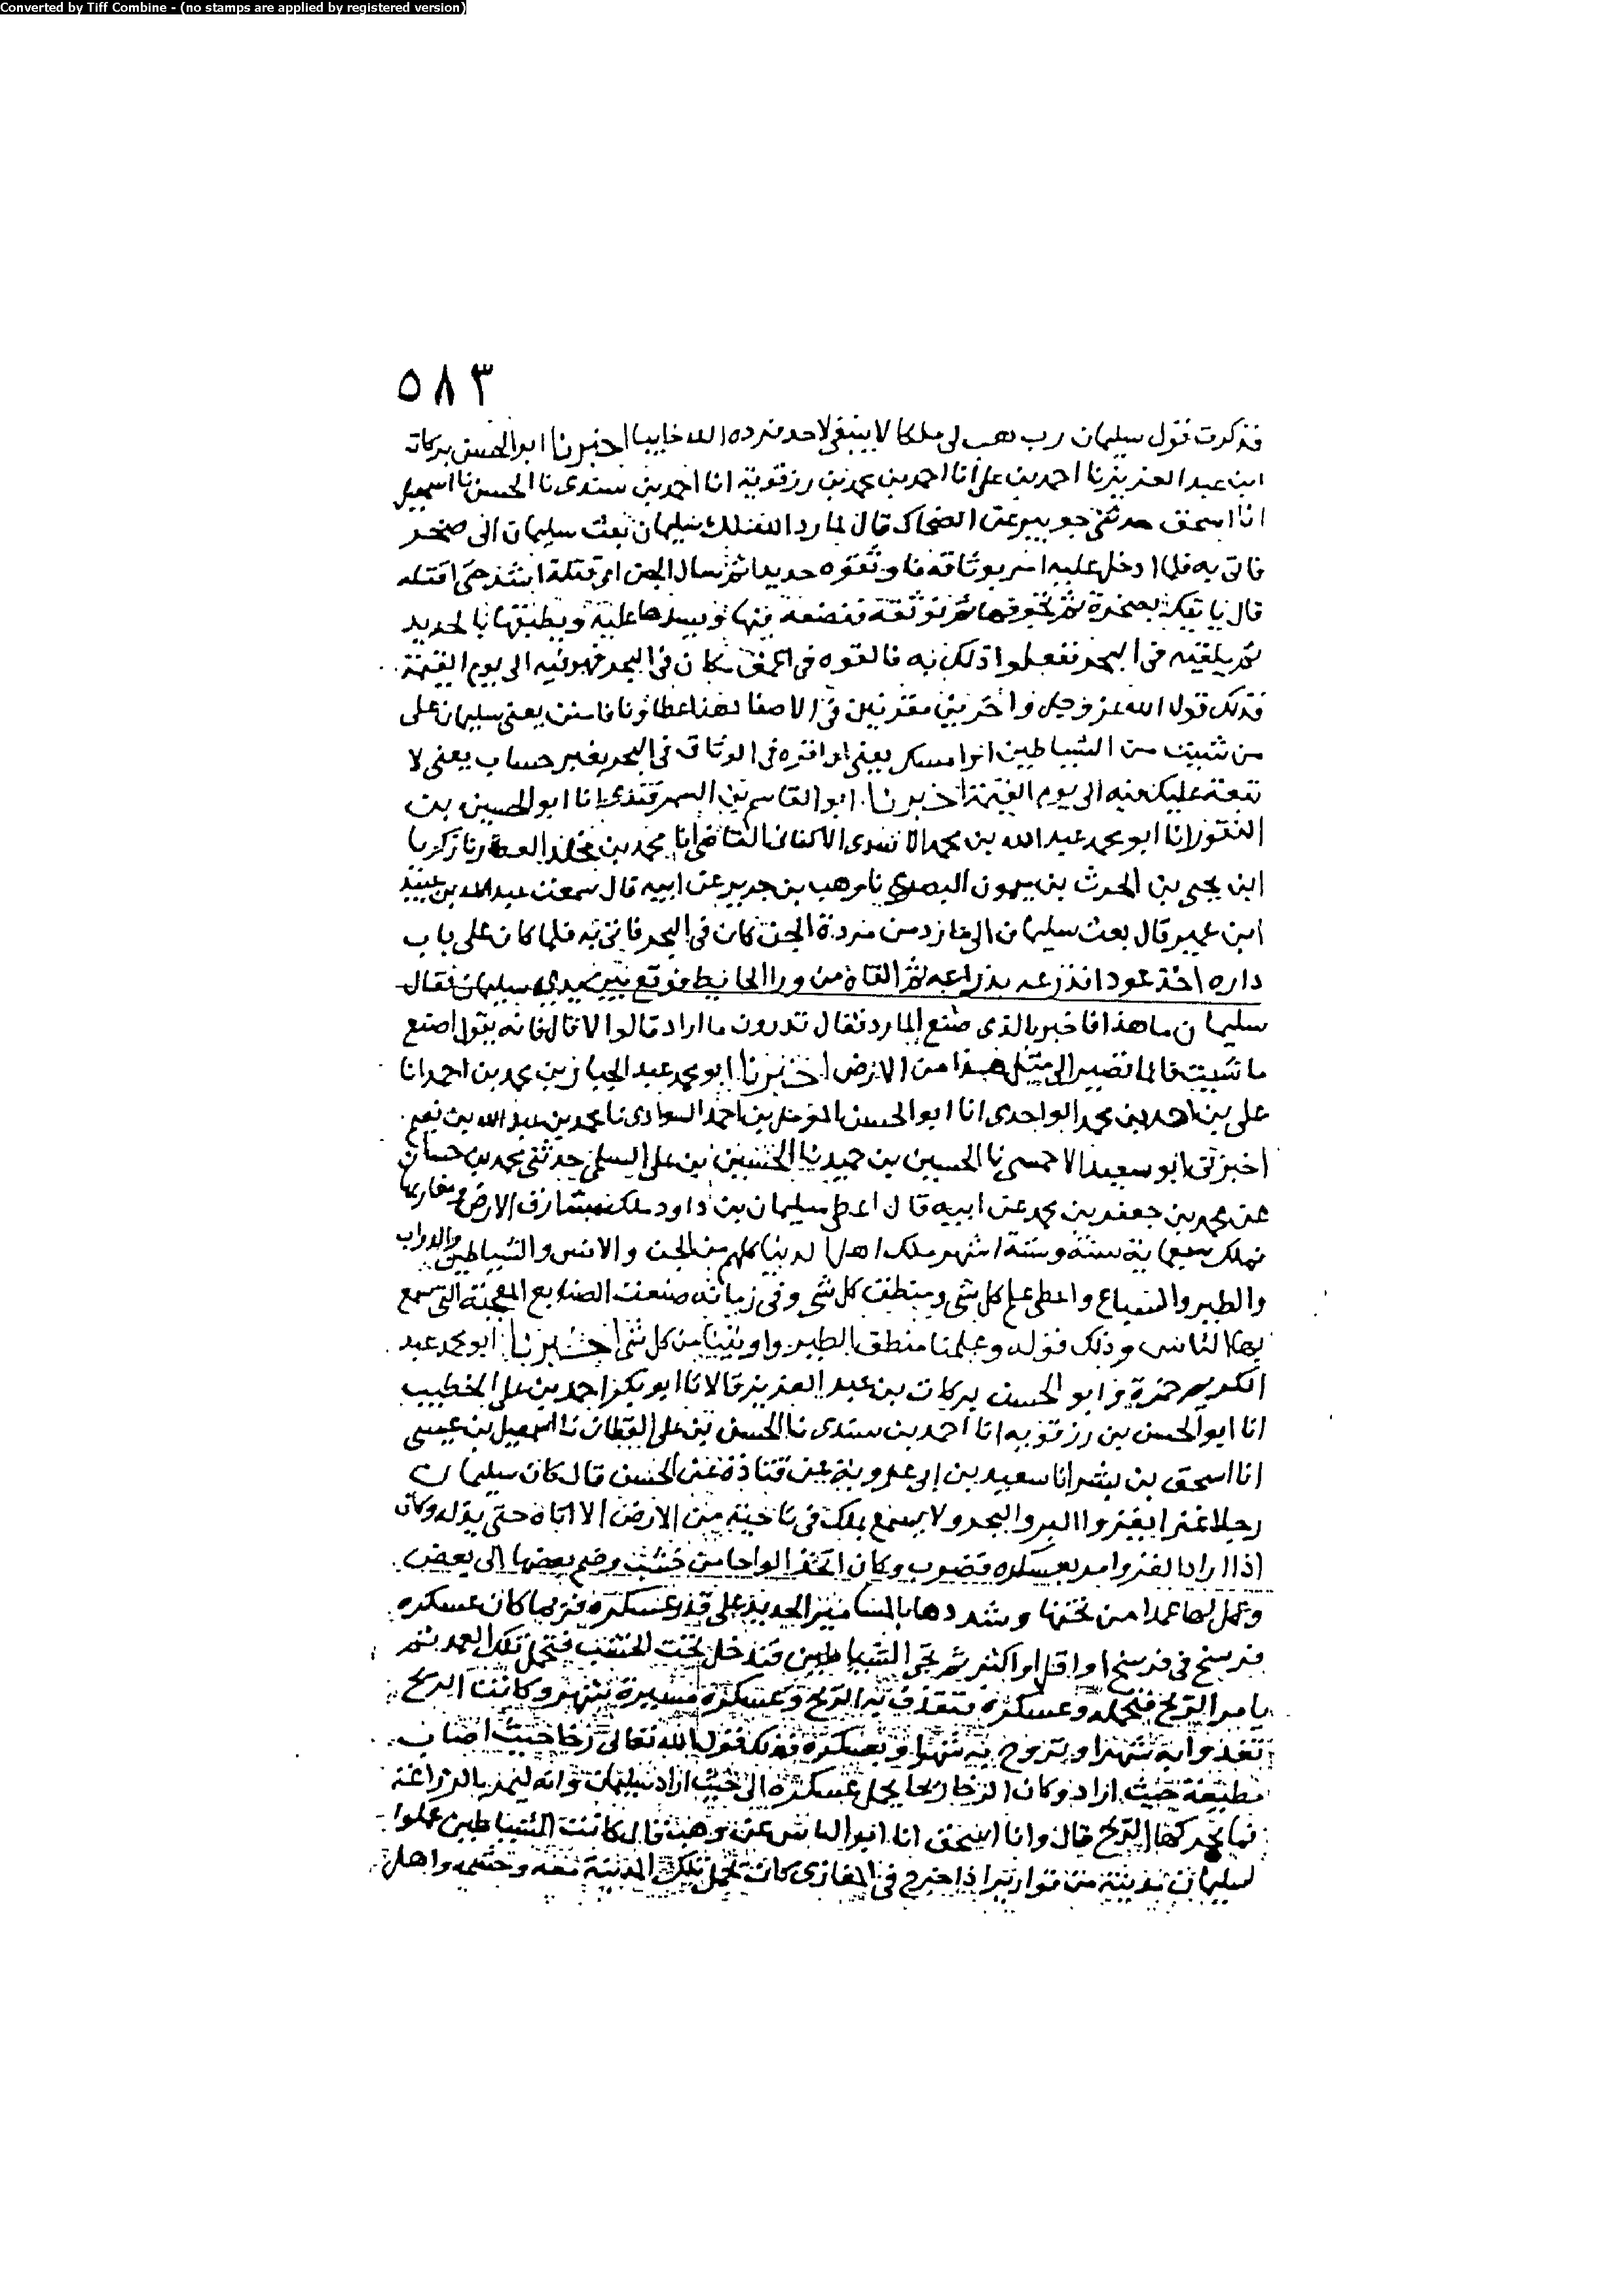 Converted by Tiff Combine - (no stamps are applied by registered version)
٥٨٣
فذكرت قول سليمان رب هب لي ملكا لا ينبغي لاحد فرده الله خايبا اخبرنا ابو الحسن بركات
ابن عبد العزيز نا احمد بن علي انا احمد بن محمد بن رزقويه انا احمد بن سندي نا الحسن نا اسمعيل
انا اسحق حدثني جويبر عن الضحاك قال لما رد الله ملك سليمان بعث سليمان الى صخر
فاتي به فلما ادخل عليه امر بوثاقه فاوثقوه حديدا ثم سال الجن اي قتلة اشد حتى اقتله
قال ياتيك بصخرة ثم يجوفها ثم توثقه فتضعه فيها ويسدها عليه ويطبقها بالحديد
ثم يلقيه في البحر ففعلوا ذلك به فالقوه في اعمق مكان في البحر فهو فيه الى يوم القيمة
فذلك قول الله عز وجل واخرين مقرنين في الاصفاد هذا عطاونا فامنن يعني سليمان على
من شيت من الشياطين او امسك يعني او اقره في الوثاق في البحر بغير حساب يعني لا
تبعة عليك فيه الى يوم القيمة اخبرنا ابو القاسم بن السمرقندي انا ابو الحسين بن
النقور انا ابو محمد عبد الله بن محمد الاسدي الاكفاني القاضي انا محمد بن مخلد العطار نا زكريا
ابن يحيى بن الحرث بن ميمون البصري نا وهب بن جرير عن ابيه قال سمعت عبد الله بن عبيد
ابن عمير قال بعث سليمان الى مارد من مردة الجن كان في البحر فاتي به فلما كان على باب
داره اخذ عودا فذرعه بذراعه ثم القاه من ورا الحايط فوقع بين يدي سليمان فقال
سليمان ما هذا فاخبر بالذي صنع المارد فقال تدرون ما اراد قالوا لا قال فانه يقول اصنع
ما شيت فانما تصير الى مثل هذا من الارض اخبرنا ابو محمد عبد الجبار بن محمد بن احمد انا
علي بن احمد بن محمد الواحدي انا ابو الحسن المومل بن احمد السوادي نا محمد بن عبد الله بن نعيم
اخبرني ابو سعيد الاحمسي نا الحسين بن حميد نا الحسين بن علي السلمي حدثني محمد بن حسان
عن محمد بن جعفر بن محمد عن ابيه قال اعطي سليمان بن داود ملك مشارق الارض ومغاربها
فملك سبعماية سنة وستة اشهر ملك اهل الدنيا كلهم من الجن والانس والشياطين والدواب
والطير والسباع واعطي علم كل شي ومنطق كل شي وفي زمانه صنعت الصنايع المعجبة التي سمع
بها الناس وذلك قوله وعلمنا منطق الطير واوتينا من كل شي اخبرنا ابو محمد عبد
الكريم حمزة وابو الحسن بركات بن عبد العزيز قالا نا ابو بكر احمد بن علي الخطيب
انا ابو الحسن بن رزقويه انا احمد بن سندي نا الحسن بن علي القطان نا اسمعيل بن عيسى
انا اسحق بن بشر انا سعيد بن ابي عروبة عن قتادة عن الحسن قال كان سليمان
رجلا غزا يغزوا البر والبحر ولا يسمع بملك في ناحية من الارض الا اتاه حتى يذله وكان
اذا اراد الغزو امر بعسكره فضرب وكان اتخذ الواحا من خشب وضم بعضها الى بعض
وعمل لها عمدا من تحتها وشددها بالمسامير الحديد على قدر عسكره فربما كان عسكره
فرسخ في فرسخ او اقل او اكثر ثم تجي الشياطين فتدخل تحت الخشب فتحمل تلك العمد ثم
يامر الريح فتحمله وعسكره فتقذف به الريح وعسكره مسيرة شهر وكانت الريح
تغدوا به شهرا وتروح به شهرا وبعسكره فذلك قول الله تعالى رخا حيث اصاب
مطيعة حيث اراد وكان الرخا ريحا يحمل عسكره الى حيث اراد سليمان وانه ليمر بالزراعة
فما يحركها الريح قال وانا اسحق انا ابو الياس عن وهب قال كانت الشياطين عملوا
لسليمان مدينة من قوارير اذا خرج في المغازي كانت تحمل تلك المدينة معه وحشمه واهل